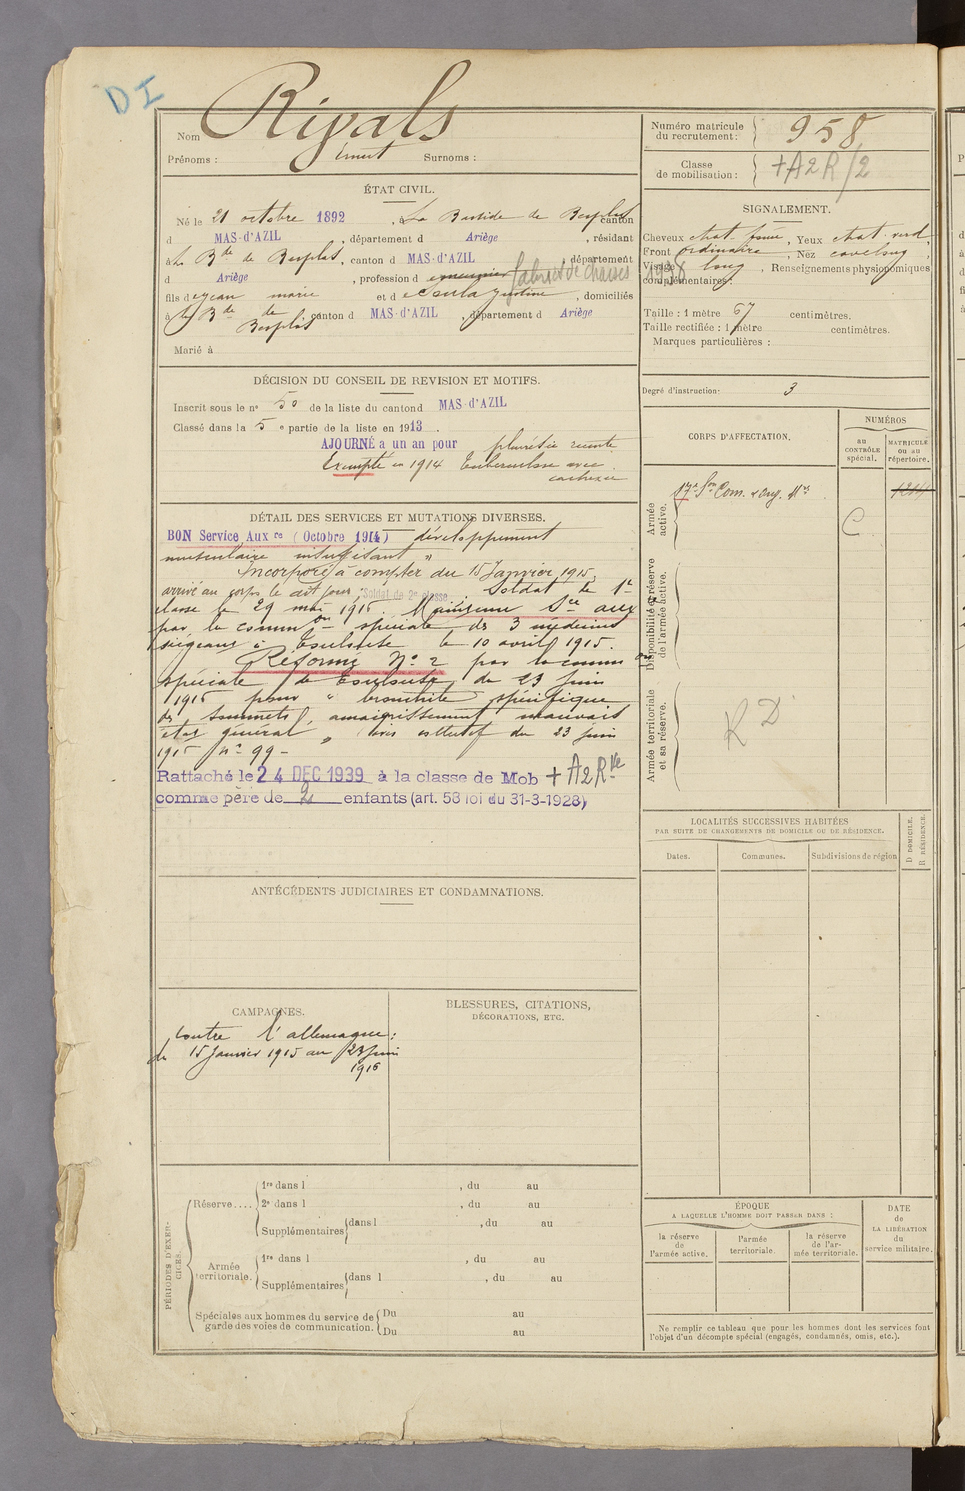 DI
Nom Rivals
Prénoms : Ernest Surnoms :
Numéro matricule du recrutement : 958
Classe de mobilisation : +A2R/2
ÉTAT CIVIL.
Né le 21 octobre 1892, à La Bastide de Besplas canton
d MAS-d'AZIL, département d Ariège, résidant
à La Bde de Besplas, canton d MAS-d'AZIL, département
d Ariège, profession d fabricant de chaises
fils de Jean marie et d Justine, domiciliés
à La Bde de Besplas canton d MAS-d'AZIL, département d Ariège
Marié à
SIGNALEMENT.
Cheveux chat. foncé, Yeux chat. verd,
Front ordinaire, Nez
Visage long, Renseignements physionomiques
complémentaires :
Taille : 1 mètre 67 centimètres.
Taille rectifiée : 1 mètre centimètres.
Marques particulières :
Degré d'instruction : 3
DÉCISION DU CONSEIL DE REVISION ET MOTIFS.
Inscrit sous le n° 50 de la liste du canton d MAS-d'AZIL
Classé dans la 5e partie de la liste en 1913.
AJOURNÉ a un an pour pleurésie récente
Exempté en 1914 Tuberculose avec
cachexie
DÉTAIL DES SERVICES ET MUTATIONS DIVERSES.
BON Service Auxre (Octobre 1914) développement
musculaire insuffisant "
Incorporé à compter du 15 Janvier 1915,
arrivé au corps le dit jour, Soldat de 2e classe. Soldat de 1e
classe le 29 mai 1915. Maintenu Sce aux
par la common spéciale des 3 médecins
siégeant à Toulouse le 10 avril 1915.
Réformé N° 2 par la common
spéciale de Toulouse du 23 juin
1915 pour " bronchite spécifique
des sommets, amaigrissement mauvais
état général " avis collectif du 23 juin
1915 n° 99 -
Rattaché le 24 DEC 1939 à la classe de Mob + A2R
comme père de 2 enfants (art. 58 loi du 31-3-1928)
CORPS D'AFFECTATION.
NUMÉROS
au CONTRÔLE spécial.
MATRICULE ou au répertoire.
Armée active.
17e Son Com. & Ouv. Mres
C
Disponibilité et réserve de l'armée active.
Armée territoriale et sa réserve.
RD
LOCALITÉS SUCCESSIVES HABITÉES
PAR SUITE DE CHANGEMENTS DE DOMICILE OU DE RÉSIDENCE.
Dates.
Communes.
Subdivisions de région
D DOMICILE.
R RÉSIDENCE.
ANTÉCÉDENTS JUDICIAIRES ET CONDAMNATIONS.
CAMPAGNES.
Contre l'allemagne :
du 15 Janvier 1915 au 23 Juin
1915
BLESSURES, CITATIONS,
DÉCORATIONS, ETC.
PÉRIODES D'EXERCICES.
Réserve....
1re dans l , du au
2e dans l , du au
Supplémentaires dans l , du au
Armée territoriale.
1re dans l , du au
Supplémentaires dans l , du au
Spéciales aux hommes du service de
garde des voies de communication.
Du au
Du au
ÉPOQUE
A LAQUELLE L'HOMME DOIT PASSER DANS :
la réserve de l'armée active.
l'armée territoriale.
la réserve de l'armée territoriale.
DATE de LA LIBÉRATION du service militaire.
Ne remplir ce tableau que pour les hommes dont les services font
l'objet d'un décompte spécial (engagés, condamnés, omis, etc.).